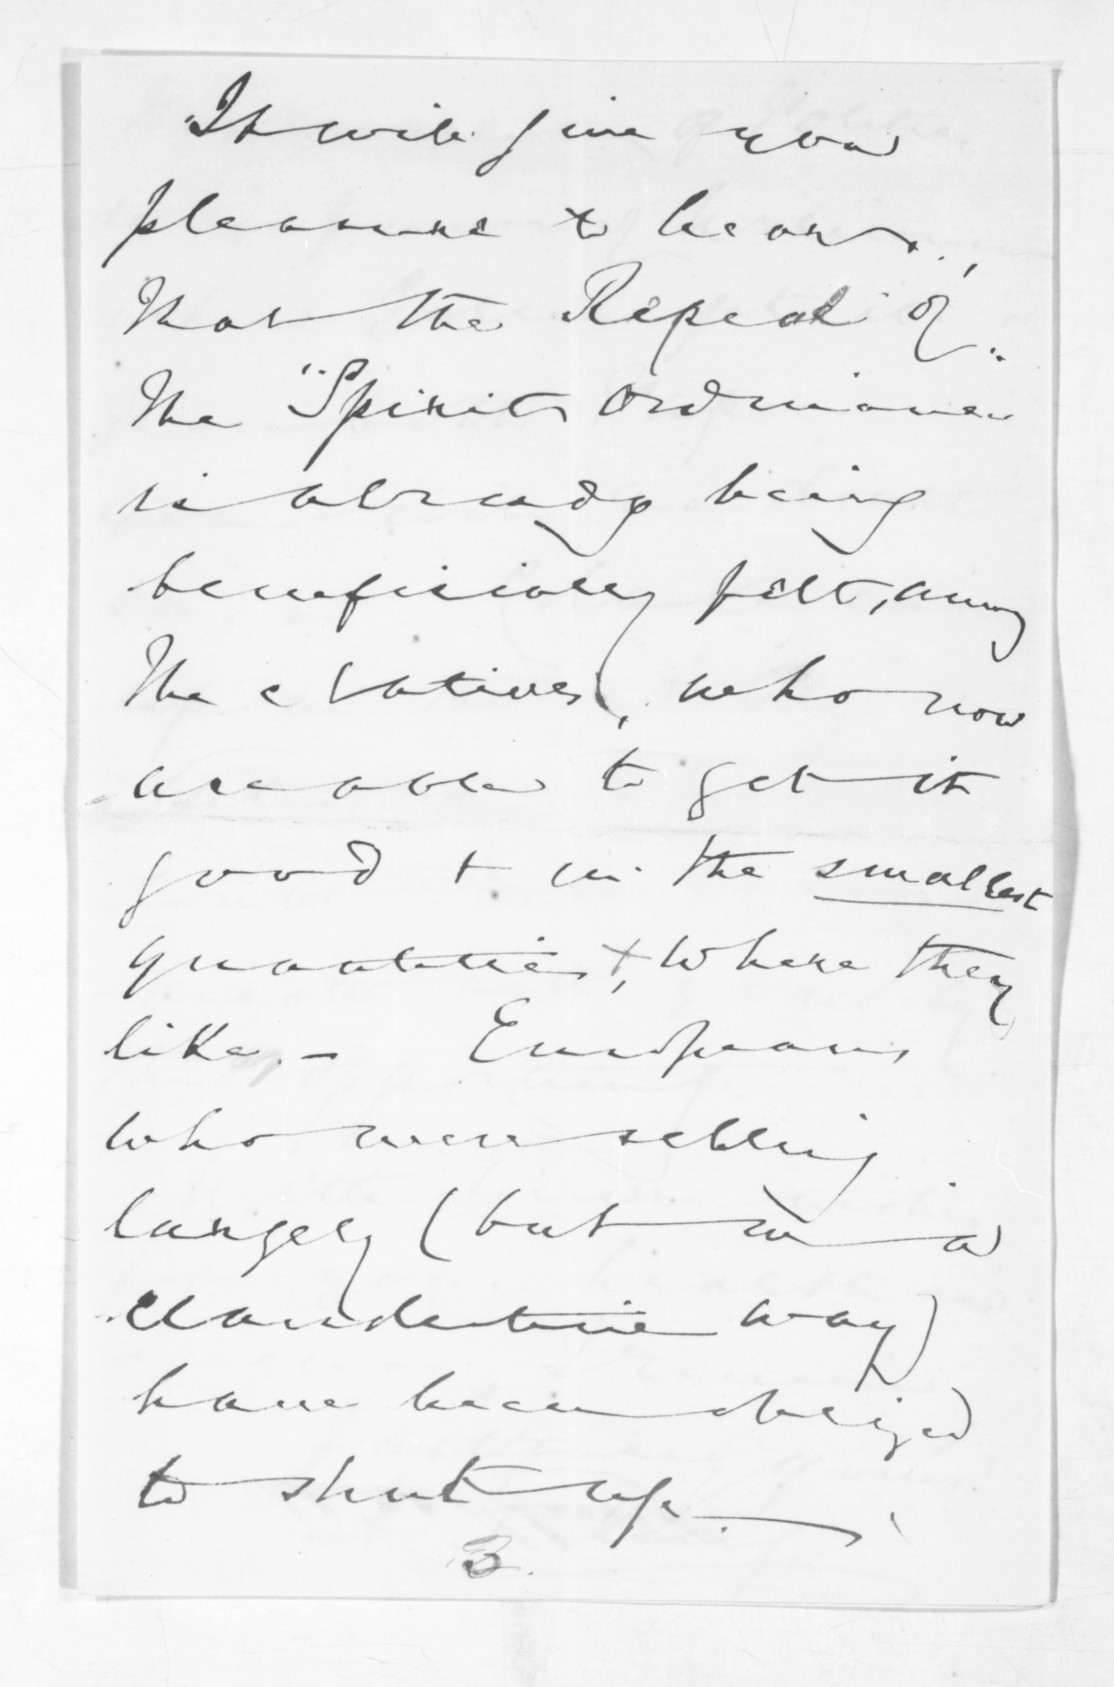 It will give you
pleasure to hear,
that the Repeal of
the "Spirits Ordinance
is already being
beneficially felt, among
the Natives, who now
are able to get it
good & in the smallest
quantities, & where they
like. - Europeans
who were selling
largely (but in a
clandestine way)
have been obliged
to shut up. —
3.